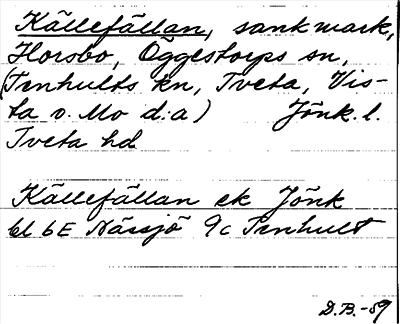 Källefällan, sank mark,
Horsbo, Öggestorps sn,
(Tenhults kn, Tveta, Vis-
ta o. Mo d:a) Jönk. l.
Tveta hd
Källefällan ek Jönk
bl 6E Nässjö 9c Tenhult
D.B.-59